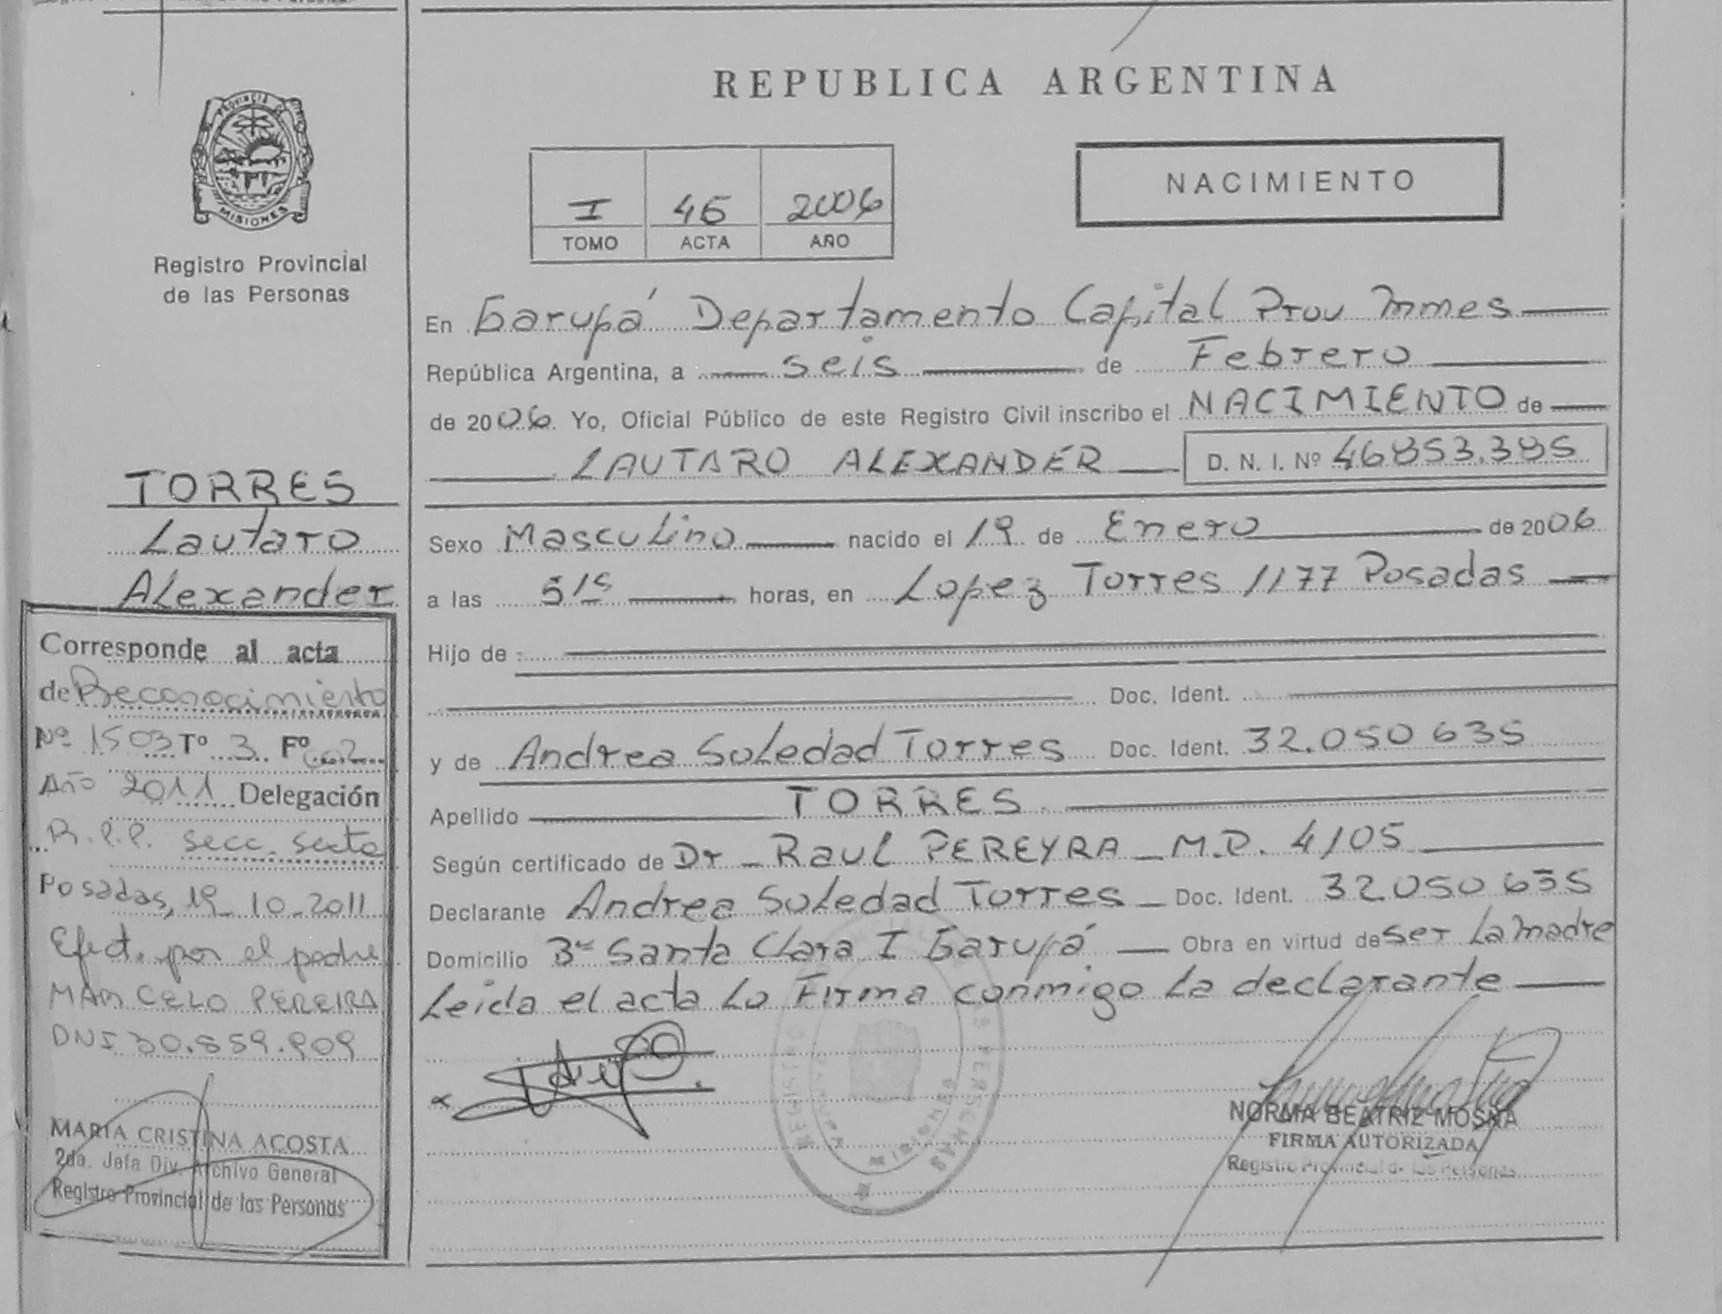 PROVINCIA DE
MISIONES
Registro Provincial
de las Personas
TORRES
Lautaro
Alexander
Corresponde al acta
de Reconocimiento
Nº 1503 Tº 3 Fº
Año 2011 Delegación
R.P.P. secc. sexta
Posadas, 19_10_2011
Efect. por el padre
MARCELO PEREIRA
DNI 30.559.909
MARIA CRISTINA ACOSTA
2da. Jefa Div. Archivo General
Registro Provincial de las Personas
REPUBLICA ARGENTINA
I 45 2006
TOMO ACTA AÑO
NACIMIENTO
En Garupá Departamento Capital Prov Mnnes
República Argentina, a seis de Febrero
de 2006. Yo, Oficial Público de este Registro Civil inscribo el NACIMIENTO de
LAUTARO ALEXANDER D. N. I. Nº 46853.385
Sexo Masculino nacido el 19 de Enero de 2006
a las 5 15 horas, en Lopez Torres 1177 Posadas
Hijo de
Doc. Ident.
y de Andrea Soledad Torres Doc. Ident. 32.050 635
Apellido TORRES
Según certificado de Dr _ Raul PEREYRA _ M.P. 4105
Declarante Andrea Soledad Torres _ Doc. Ident. 32.050 635
Domicilio Bº Santa Clara I Garupá Obra en virtud de ser La madre
Leida el acta La Firma conmigo La declarante
NORMA BEATRIZ MOSNA
FIRMA AUTORIZADA
Registro Provincial de las Personas